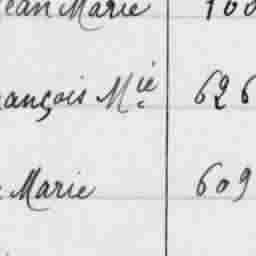 Jean Marie 100
ançois M.ie 626
Marie 609